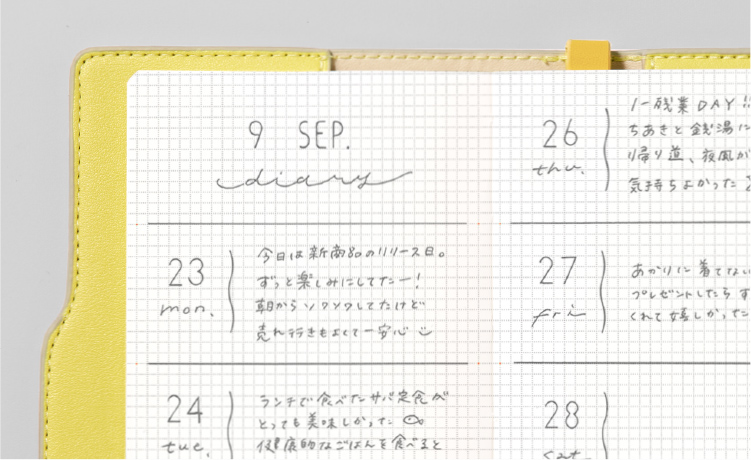 9 SEP.
diary
23
mon.
今日は新商品のリリース日。
ずっと楽しみにしてたー！
朝からソワソワしてたけど
売れ行きもよくて一安心
24
tue.
ランチで食べたサバ定食が
とっても美味しかった
健康的なごはんを食べると
26
thu.
ノー残業DAY!!
ちあきと銭湯に
帰り道、夜風が
気持ちよかった
27
fri
あかりに着てない
プレゼントしたらす
くれて嬉しかった
28
sat.